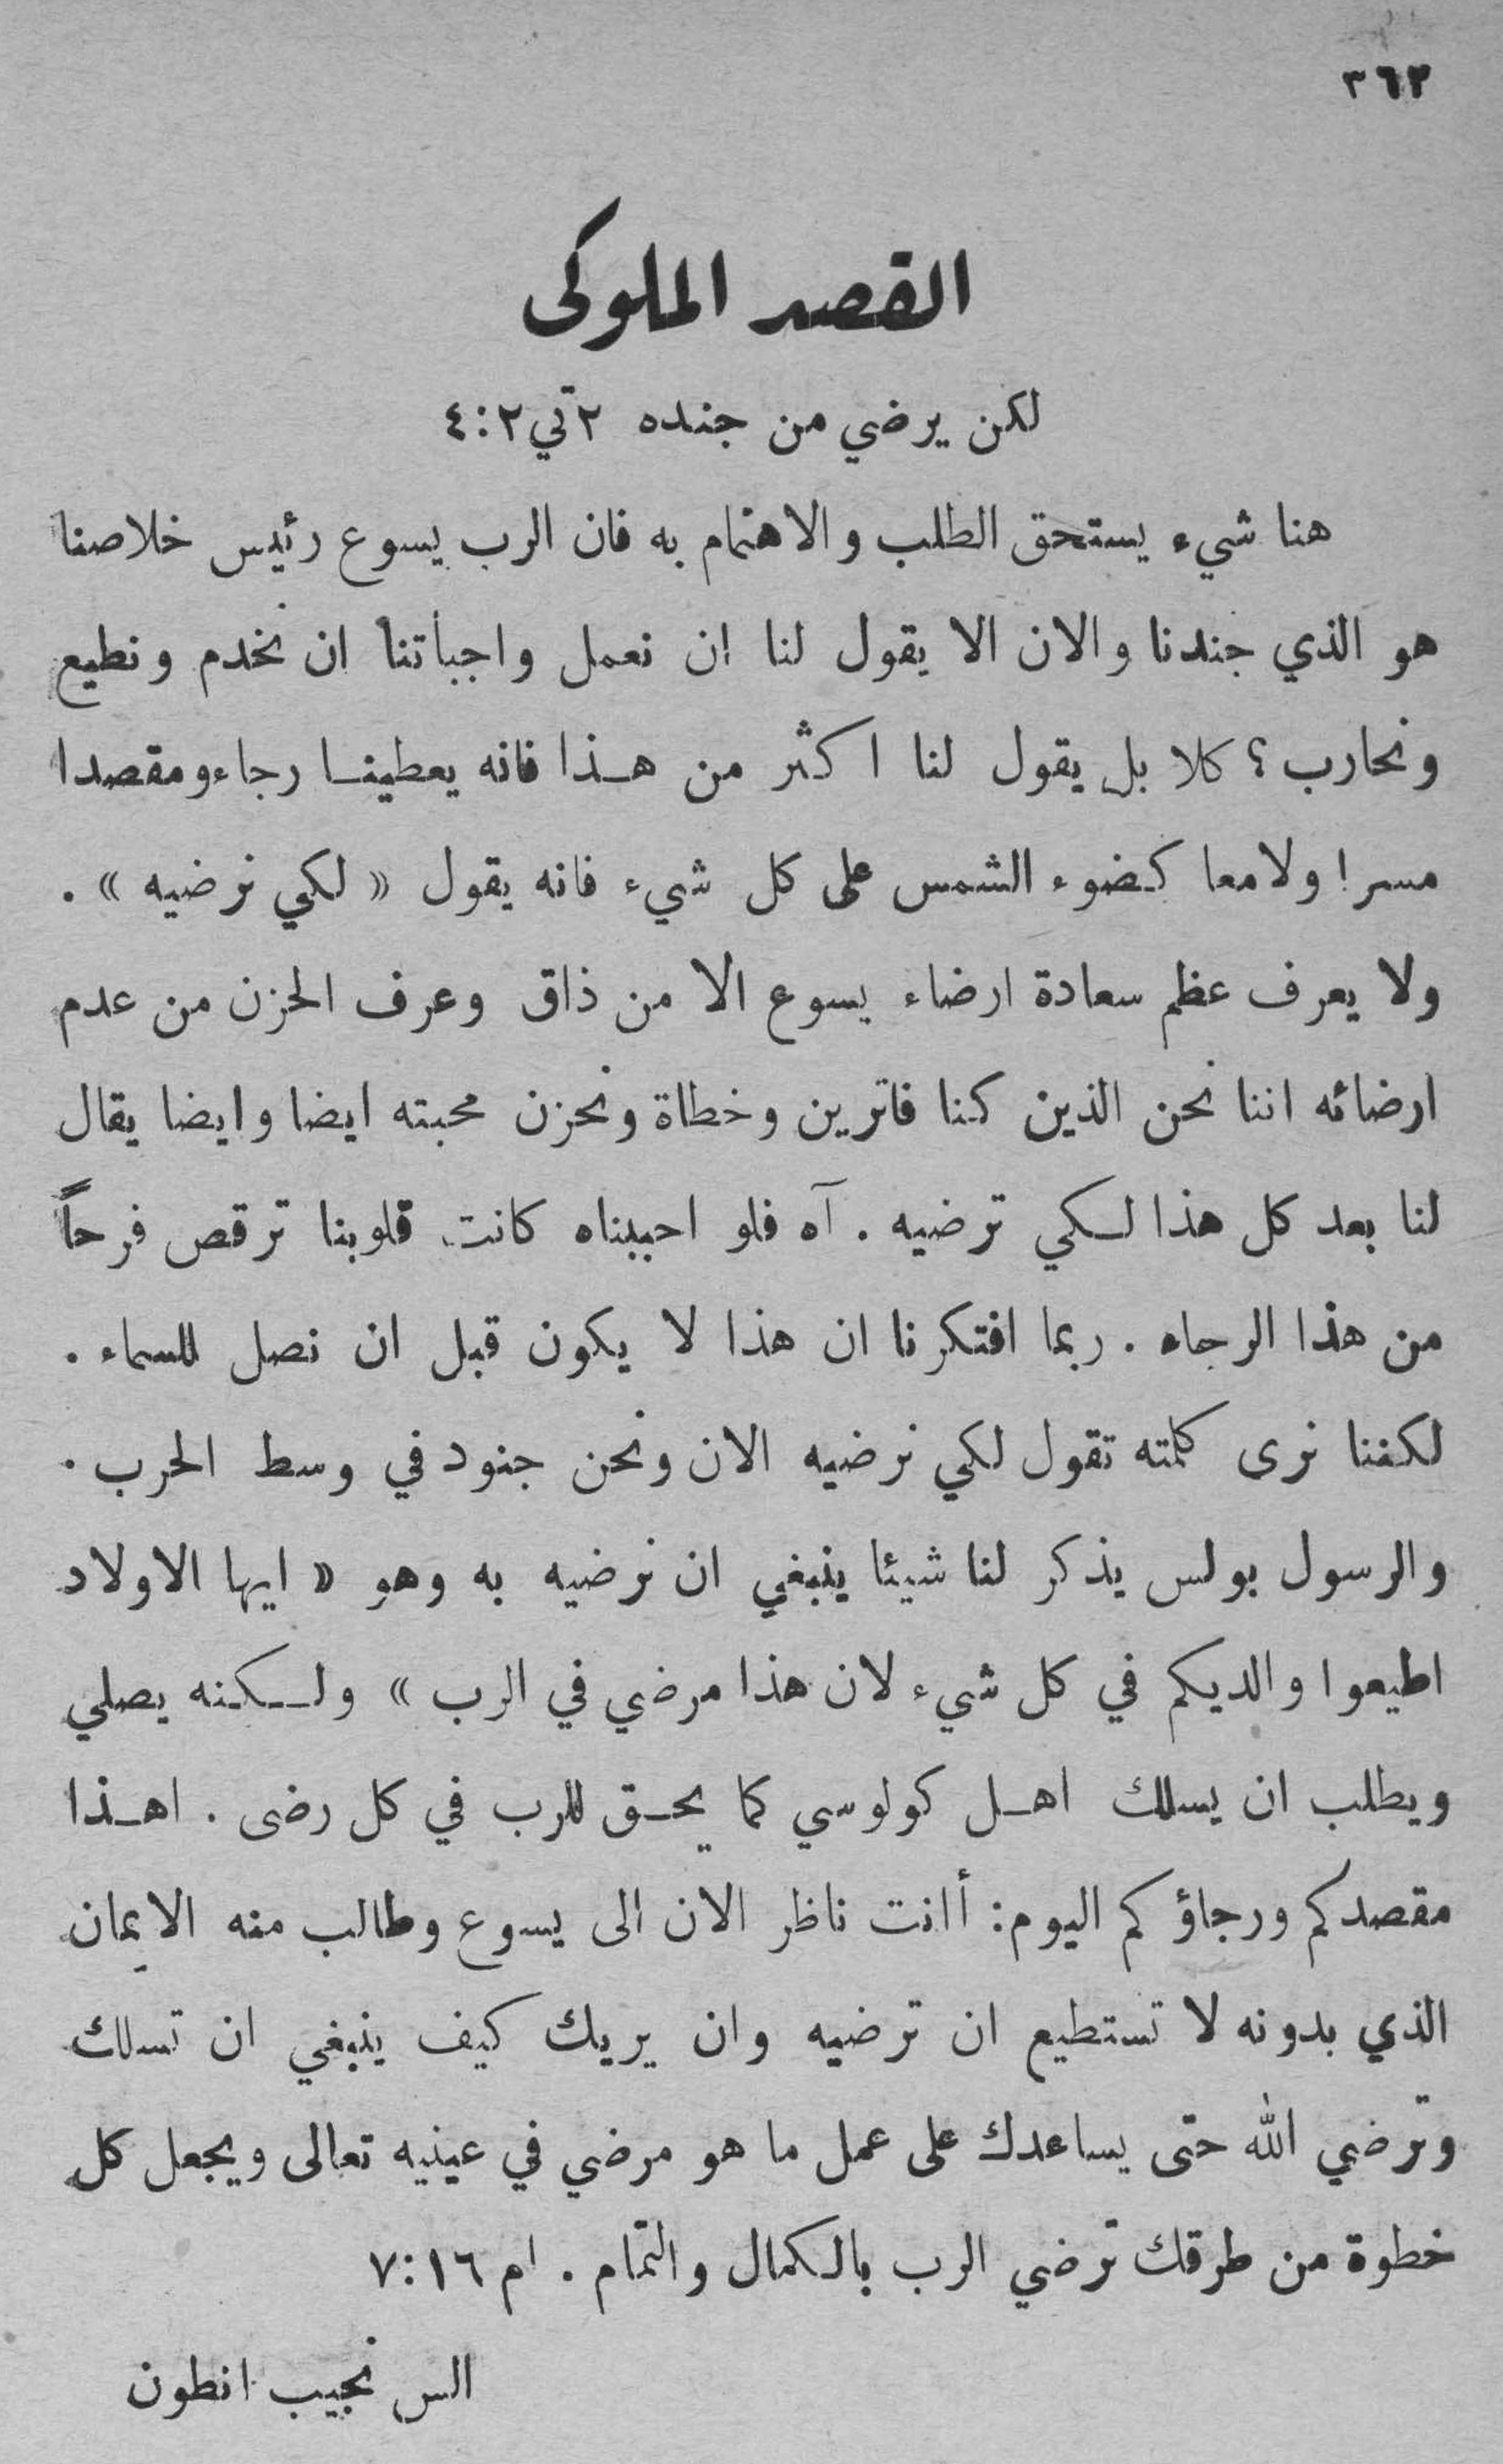 ٣٦٢
القصد الملوكى
لكن يرضي من جنده ٢تي٢:٤
هنا شيء يستحق الطلب والاهتمام به فان الرب يسوع رئيس خلاصنا
هو الذي جندنا والان الا يقول لنا ان نعمل واجباتنا ان نخدم ونطيع
ونحارب؟ كلا بل يقول لنا اكثر من هذا فانه يعطينا رجاءومقصدا
مسرا ولامعا كضوء الشمس على كل شيء فانه يقول « لكي نرضيه » .
ولا يعرف عظم سعادة ارضاء يسوع الا من ذاق وعرف الحزن من عدم
ارضائه اننا نحن الذين كنا فاترين وخطاة ونحزن محبته ايضا وايضا يقال
لنا بعد كل هذا لكي ترضيه . آه فلو احببناه كانت قلوبنا ترقص فرحاً
من هذا الرجاء . ربما افتكرنا ان هذا لا يكون قبل ان نصل للسماء .
لكننا نرى كلمته تقول لكي نرضيه الان ونحن جنود في وسط الحرب .
والرسول بولس يذكر لنا شيئا ينبغي ان نرضيه به وهو « ايها الاولاد
اطيعوا والديكم في كل شيء لان هذا مرضي في الرب » ولكنه يصلي
ويطلب ان يسلك اهل كولوسي كما يحق للرب في كل رضى . اهذا
مقصدكم ورجاؤكم اليوم: أانت ناظر الان الى يسوع وطالب منه الايمان
الذي بدونه لا تستطيع ان ترضيه وان يريك كيف ينبغي ان تسلك
وترضي الله حتى يساعدك على عمل ما هو مرضي في عينيه تعالى ويجعل كل
خطوة من طرقك ترضي الرب بالكمال والتمام . ام ١٦:٧
الس نجيب انطون